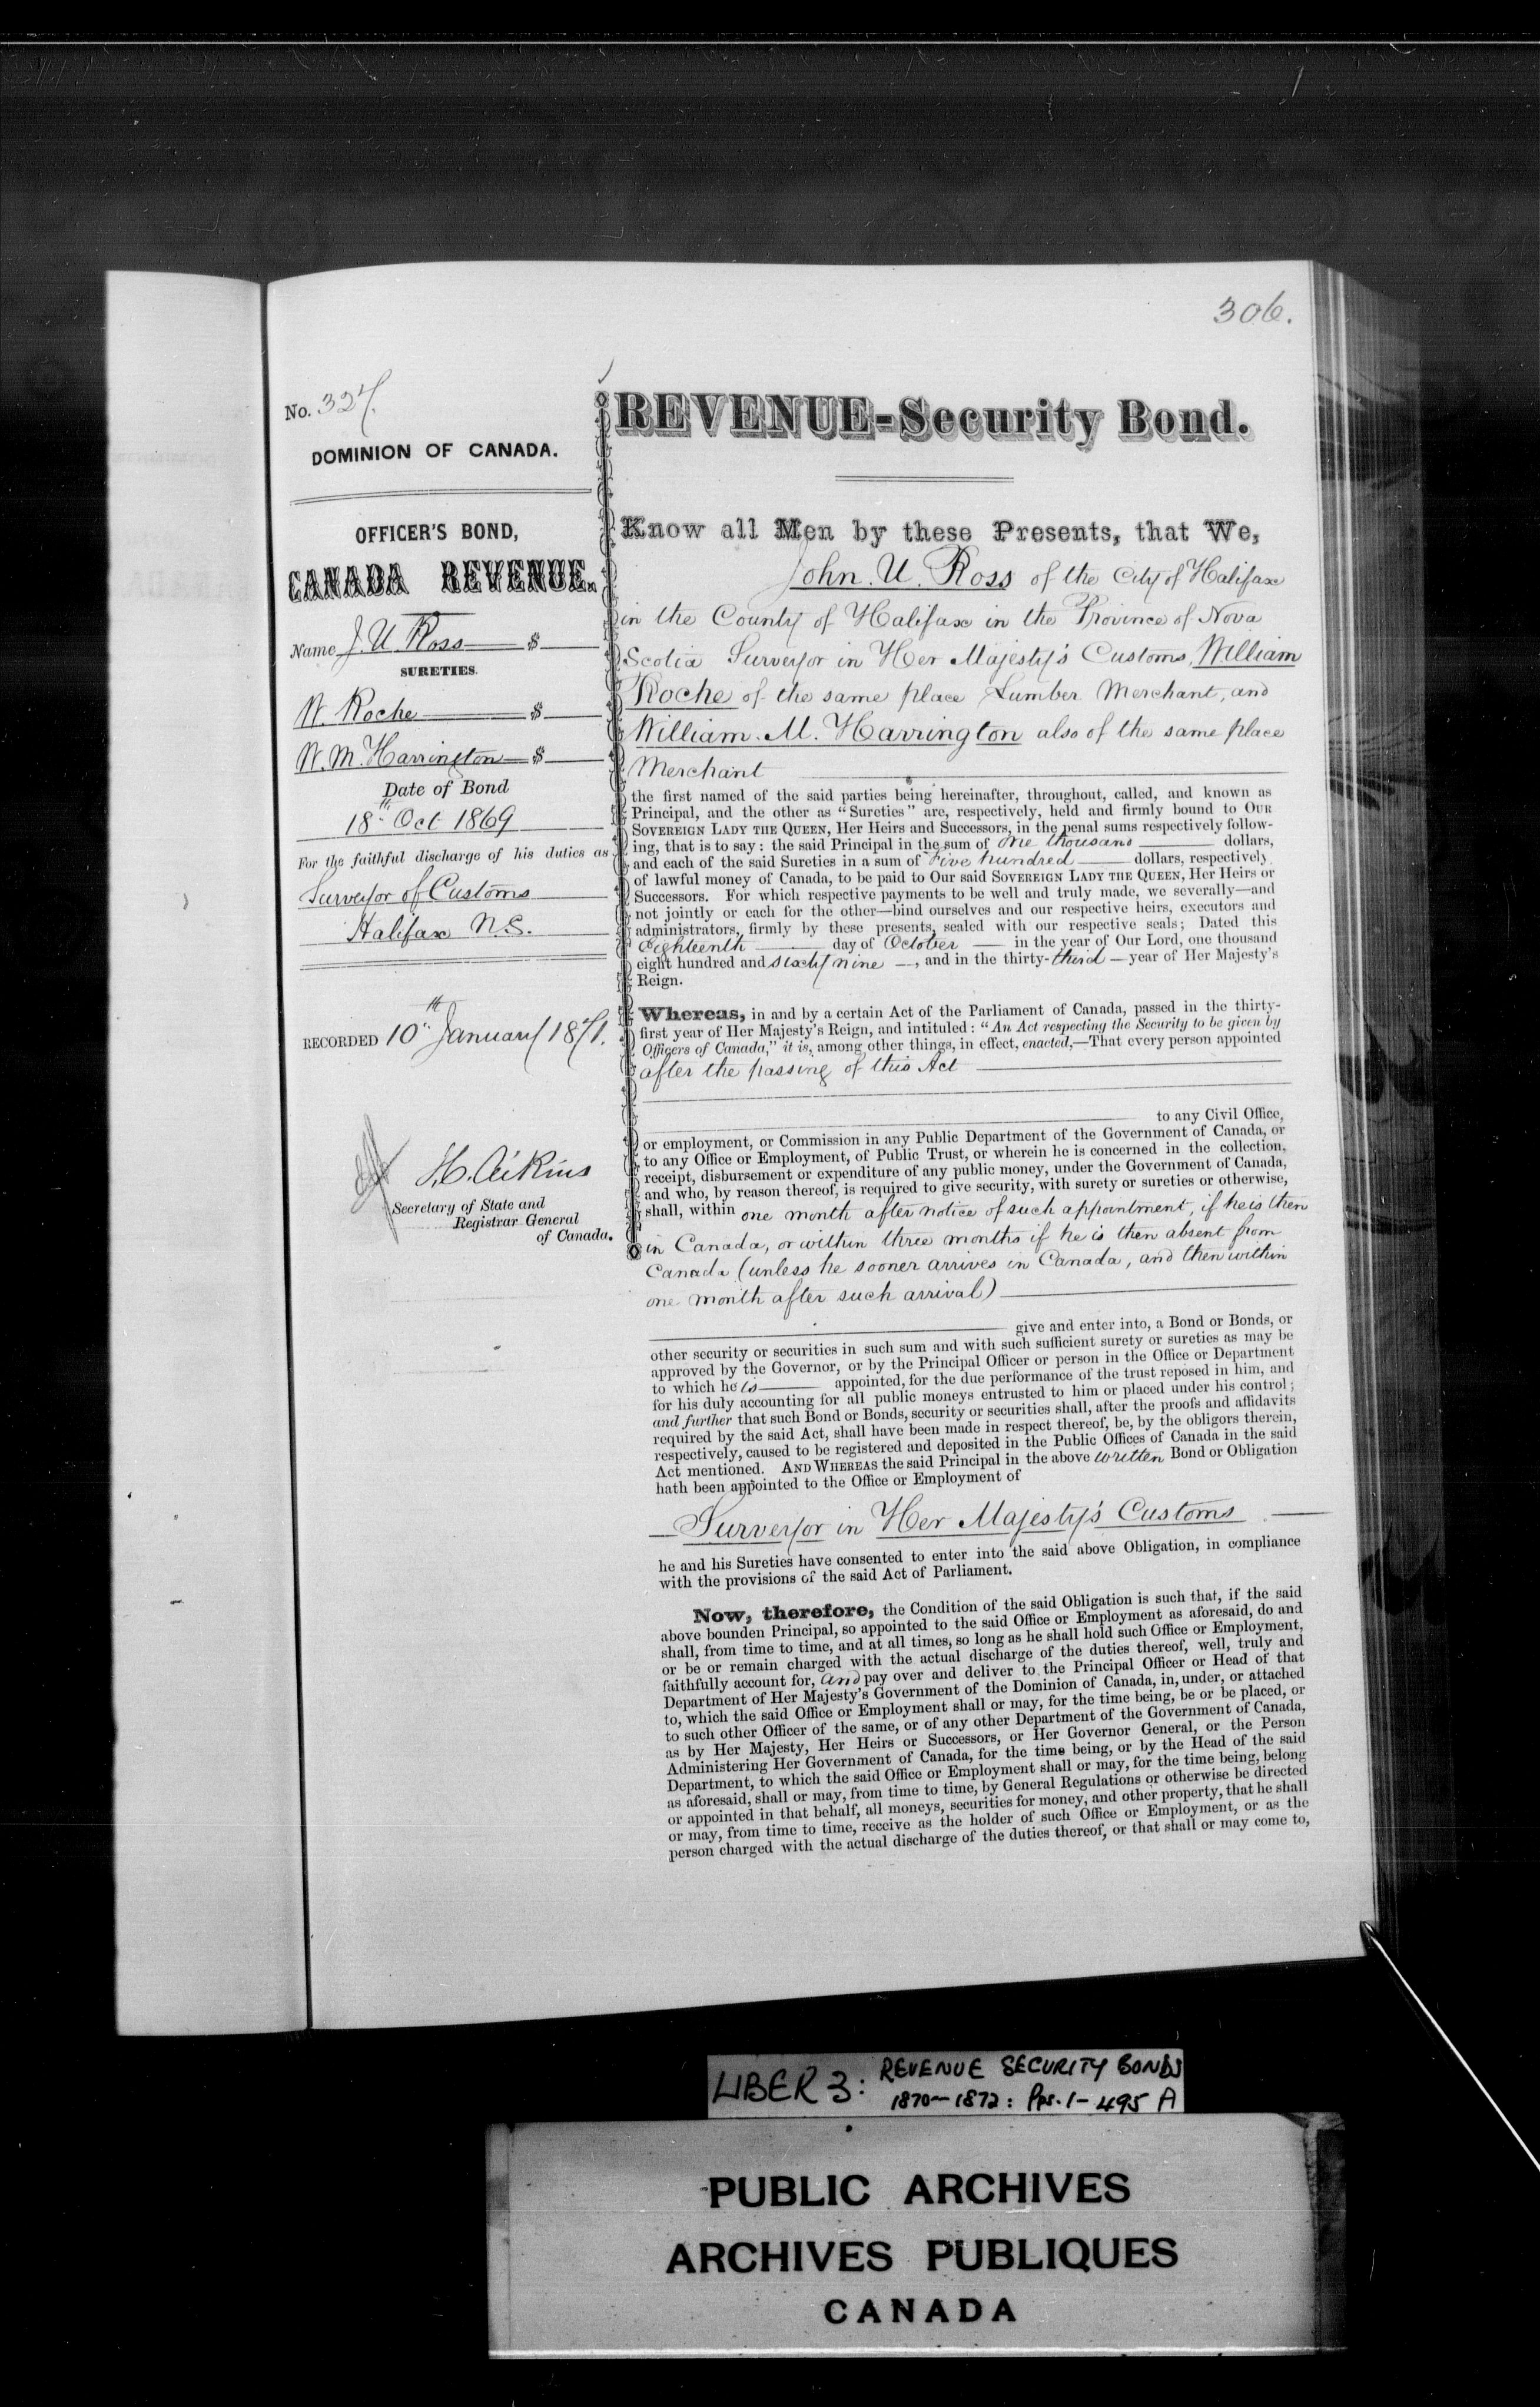 306.
No. 327.
DOMINION OF CANADA.
OFFICER'S BOND,
CANADA REVENUE.
Name J. U. Ross $
SURETIES.
W. Roche $
W. M. Harrington $
Date of Bond
18th Oct 1869
For the faithful discharge of his duties as
Surveyor of Customs
Halifax N.S.
RECORDED 10th January 1871.
J.C. Aikins
Secretary of State and
Registrar General
of Canada.
REVENUE-Security Bond.
Know all Men by these Presents, that We,
John. U. Ross of the City of Halifax
in the County of Halifax in the Province of Nova
Scotia Surveyor in Her Majesty's Customs, William
Roche of the same place Lumber Merchant, and
William. M. Harrington also of the same place
Merchant
the first named of the said parties being hereinafter, throughout, called, and known as
Principal, and the other as "Sureties" are, respectively, held and firmly bound to OUR
SOVEREIGN LADY THE QUEEN, Her Heirs and Successors, in the penal sums respectively follow-
ing, that is to say: the said Principal in the sum of One thousand dollars,
and each of the said Sureties in a sum of Five hundred dollars, respectively
of lawful money of Canada, to be paid to Our said SOVEREIGN LADY THE QUEEN, Her Heirs or
Successors. For which respective payments to be well and truly made, we severally—and
not jointly or each for the other—bind ourselves and our respective heirs, executors and
administrators, firmly by these presents, sealed with our respective seals; Dated this
Eighteenth day of October in the year of Our Lord, one thousand
eight hundred and sixty nine —, and in the thirty-third — year of Her Majesty's
Reign.
Whereas, in and by a certain Act of the Parliament of Canada, passed in the thirty-
first year of Her Majesty's Reign, and intituled: "An Act respecting the Security to be given by
Officers of Canada," it is, among other things, in effect, enacted,—That every person appointed
after the passing of this Act
to any Civil Office,
or employment, or Commission in any Public Department of the Government of Canada, or
to any Office or Employment, of Public Trust, or wherein he is concerned in the collection,
receipt, disbursement or expenditure of any public money, under the Government of Canada,
and who, by reason thereof, is required to give security, with surety or sureties or otherwise,
shall, within one month after notice of such appointment, if he is then
in Canada, or within three months if he is then absent from
Canada (unless he sooner arrives in Canada, and then within
one month after such arrival)
give and enter into, a Bond or Bonds, or
other security or securities in such sum and with such sufficient surety or sureties as may be
approved by the Governor, or by the Principal Officer or person in the Office or Department
to which he is appointed, for the due performance of the trust reposed in him, and
for his duly accounting for all public moneys entrusted to him or placed under his control;
and further that such Bond or Bonds, security or securities shall, after the proofs and affidavits
required by the said Act, shall have been made in respect thereof, be, by the obligors therein,
respectively, caused to be registered and deposited in the Public Offices of Canada in the said
Act mentioned. AND WHEREAS the said Principal in the above written Bond or Obligation
hath been appointed to the Office or Employment of
Surveyor in Her Majesty's Customs
he and his Sureties have consented to enter into the said above Obligation, in compliance
with the provisions of the said Act of Parliament.
Now, therefore, the Condition of the said Obligation is such that, if the said
above bounden Principal, so appointed to the said Office or Employment as aforesaid, do and
shall, from time to time, and at all times, so long as he shall hold such Office or Employment,
or be or remain charged with the actual discharge of the duties thereof, well, truly and
faithfully account for, and pay over and deliver to the Principal Officer or Head of that
Department of Her Majesty's Government of the Dominion of Canada, in, under, or attached
to, which the said Office or Employment shall or may, for the time being, be or be placed, or
to such other Officer of the same, or of any other Department of the Government of Canada,
as by Her Majesty, Her Heirs or Successors, or Her Governor General, or the Person
Administering Her Government of Canada, for the time being, or by the Head of the said
Department, to which the said Office or Employment shall or may, for the time being, belong
as aforesaid, shall or may, from time to time, by General Regulations or otherwise be directed
or appointed in that behalf, all moneys, securities for money, and other property, that he shall
or may, from time to time, receive as the holder of such Office or Employment, or as the
person charged with the actual discharge of the duties thereof, or that shall or may come to,
LIBER 3: REVENUE SECURITY BONDS
1870-1872: Pps. 1-495 A
PUBLIC ARCHIVES
ARCHIVES PUBLIQUES
CANADA